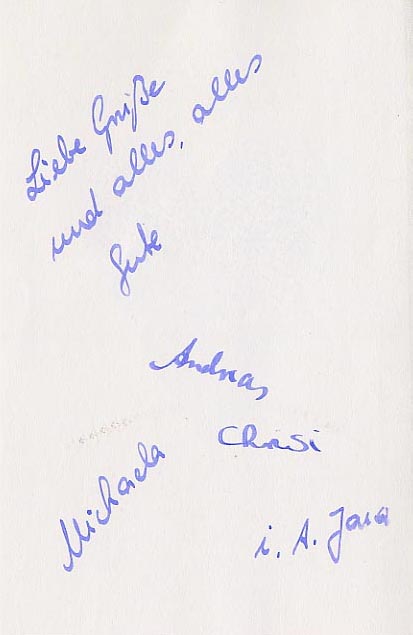 Liebe Grüße
und alles, alles
Gute
Andreas
Chrisi
Michaela
i. A. Jara